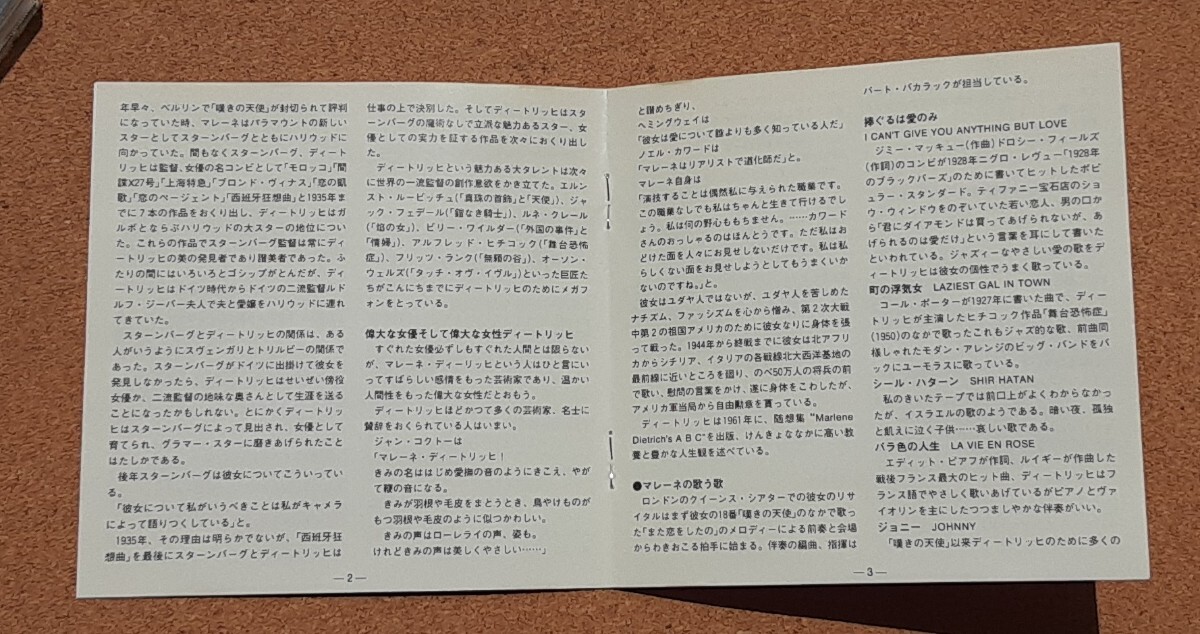 年早々、ベルリンで「嘆きの天使」が封切られて評判
になっていた時、マレーネはパラマウントの新しい
スターとしてスターンバーグとともにハリウッドに
向かっていた。間もなくスターンバーグ、ディート
リッヒは監督、女優の名コンビとして「モロッコ」「間
諜X27号」「上海特急」「ブロンド・ヴィナス」「恋の凱
歌」「恋のページェント」「西班牙狂想曲」と1935年ま
でに7本の作品をおくり出し、ディートリッヒはガ
ルボとならぶハリウッドの大スターの地位につい
た。これらの作品でスターンバーグ監督は常にディ
ートリッヒの美の発見者であり讃美者であった。ふ
たりの間にはいろいろとゴシップがとんだが、ディ
ートリッヒはドイツ時代からドイツの二流監督ルド
ルフ・ジーバー夫人で夫と愛嬢をハリウッドに連れ
てきていた。
スターンバーグとディートリッヒの関係は、ある
人がいうようにスヴェンガリとトリルビーの関係で
あった。スターンバーグがドイツに出掛けて彼女を
発見しなかったら、ディートリッヒはせいぜい傍役
女優か、二流監督の地味な奥さんとして生涯を送る
ことになったかもしれない。とにかくディートリッ
ヒはスターンバーグによって見出され、女優として
育てられ、グラマー・スターに磨きあげられたこと
はたしかである。
後年スターンバーグは彼女についてこういってい
る。
「彼女について私がいうべきことは私がキャメラ
によって語りつくしている」と。
1935年、その理由は明らかでないが、「西班牙狂
想曲」を最後にスターンバーグとディートリッヒは
仕事の上で決別した。そしてディートリッヒはスタ
ーンバーグの魔術なしで立派な魅力あるスター、女
優としての実力を証する作品を次々におくり出し
た。
ディートリッヒという魅力ある大タレントは次々
に世界の一流監督の創作意欲をかき立てた。エルン
スト・ルービッチュ(「真珠の首飾」と「天使」)、ジャ
ック・フェデール(「鎧なき騎士」)、ルネ・クレール
(「焔の女」)、ビリー・ワイルダー(「外国の事件」と
「情婦」)、アルフレッド・ヒチコック(「舞台恐怖
症」)、フリッツ・ランク(「無頼の谷」)、オーソン・
ウェルズ(「タッチ・オヴ・イヴル」)といった巨匠た
ちがこんにちまでにディートリッヒのためにメガフ
ォンをとっている。
偉大な女優そして偉大な女性ディートリッヒ
すぐれた女優必ずしもすぐれた人間とは限らない
が、マレーネ・ディーリッヒという人はひと言にい
ってすばらしい感情をもった芸術家であり、温かい
人間性をもった偉大な女性だとおもう。
ディートリッヒほどかつて多くの芸術家、名士に
賛辞をおくられている人はいまい。
ジャン・コクトーは
「マレーネ・ディートリッヒ!
きみの名ははじめ愛撫の音のようにきこえ、やが
て鞭の音になる。
きみが羽根や毛皮をまとうとき、鳥やけものが
もつ羽根や毛皮のように似つかわしい。
きみの声はローレライの声、姿も。
けれどきみの声は美しくやさしい……」
—2—
と讃めちぎり、
ヘミングウェイは
「彼女は愛について誰よりも多く知っている人だ」
ノエル・カワードは
「マレーネはリアリストで道化師だ」と。
マレーネ自身は
「演技することは偶然私に与えられた職業です。
この職業なしでも私はちゃんと生きて行けるでし
ょう。私は何の野心ももちません。……カワード
さんのおっしゃるのはほんとうです。ただ私はお
どけた面を人々にお見せしないだけです。私は私
らしくない面をお見せしようとしてもうまくいか
ないのですね。」と。
彼女はユダヤ人ではないが、ユダヤ人を苦しめた
ナチズム、ファッシズムを心から憎み、第2次大戦
中第2の祖国アメリカのために彼女なりに身体を張
って戦った。1944年から終戦までに彼女は北アフリ
カからシチリア、イタリアの各戦線北大西洋基地の
最前線に近いところを廻り、のべ50万人の将兵の前
で歌い、慰問の言葉をかけ、遂に身体をこわしたが、
アメリカ軍当局から自由勲意を貰っている。
ディートリッヒは1961年に、随想集“Marlene
Dietrich's A B C”を出版、けんきょななかに高い教
養と豊かな人生観を述べている。
●マレーネの歌う歌
ロンドンのクイーンス・シアターでの彼女のリサ
イタルはまず彼女の18番「嘆きの天使」のなかで歌っ
た「また恋をしたの」のメロディーによる前奏と会場
からわきおこる拍手に始まる。伴奏の編曲、指揮は
バート・バカラックが担当している。
捧ぐるは愛のみ
I CAN'T GIVE YOU ANYTHING BUT LOVE
ジミー・マッキュー(作曲)ドロシー・フィールズ
(作詞)のコンビが1928年ニグロ・レヴュー「1928年
のブラックバーズ」のために書いてヒットしたポピ
ュラー・スタンダード。ティファニー宝石店のショ
ウ・ウィンドウをのぞいていた若い恋人、男の口か
ら「君にダイアモンドは買ってあげられないが、あ
げられるのは愛だけ」という言葉を耳にして書いた
といわれている。ジャズィーなやさしい愛の歌をデ
ィートリッヒは彼女の個性でうまく歌っている。
町の浮気女 LAZIEST GAL IN TOWN
コール・ポーターが1927年に書いた曲で、ディー
トリッヒが主演したヒチコック作品「舞台恐怖症」
(1950)のなかで歌ったこれもジャズ的な歌、前曲同
様しゃれたモダン・アレンジのビッグ・バンドをバ
ックにユーモラスに歌っている。
シール・ハターン SHIR HATAN
私のきいたテープでは前口上がよくわからなかっ
たが、イスラエルの歌のようである。暗い夜、孤独
と飢えに泣く子供……哀しい歌である。
バラ色の人生 LA VIE EN ROSE
エディット・ピアフが作詞、ルイギーが作曲した
戦後フランス最大のヒット曲、ディートリッヒはフ
ランス語でやさしく歌いあげているがピアノとヴァ
イオリンを主にしたつつましやかな伴奏がいい。
ジョニー JOHNNY
「嘆きの天使」以来ディートリッヒのために多くの
—3—